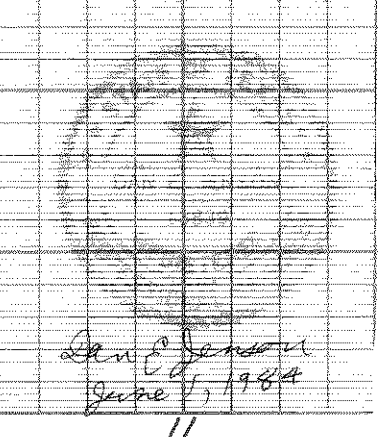 Dan E Jensen
June 1, 1984
11